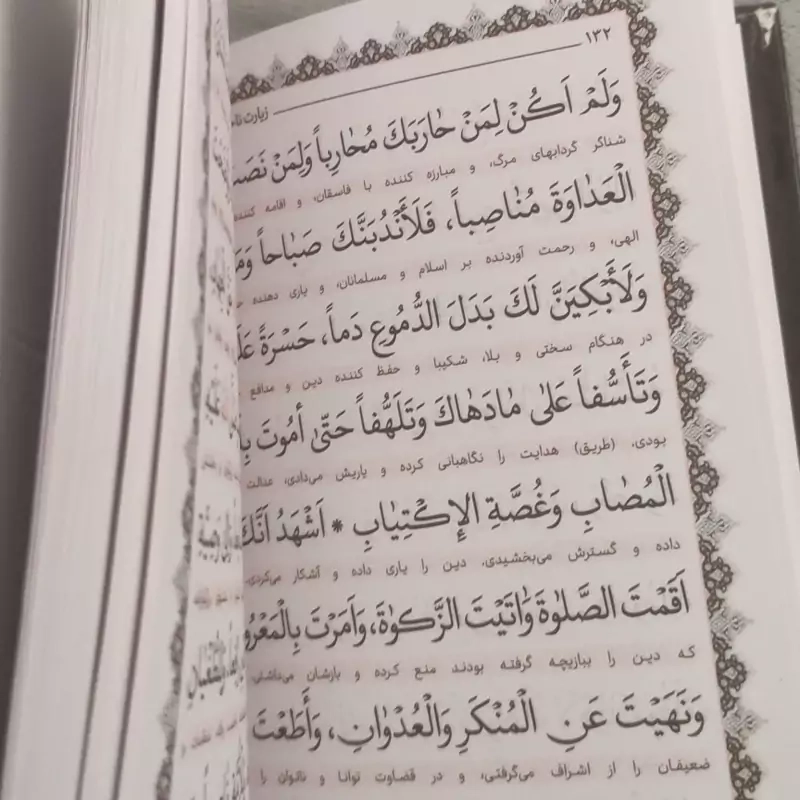 ۱۳۲
زیارت
وَلَمْ اَكُنْ لِمَنْ حٰارَبَكَ مُحٰارِباً وَلِمَنْ
شناگر گردابهای مرگ، و مبارزه کننده با فاسقان، و اقامه کننده
الْعَدٰاوَةَ مُنٰاصِباً، فَلَأَنْدُبَنَّكَ صَبٰاحاً
الهی، و رحمت آوردنده بر اسلام و مسلمانان، و یاری دهنده
وَلَأَبْكِيَنَّ لَكَ بَدَلَ الدُّمُوعِ دَماً، حَسْرَةً
در هنگام سختی و بلا، شکیبا و حفظ کننده دین و مدافع
وَتَأَسُّفاً عَلىٰ مٰادَهٰاكَ وَتَلَهُّفاً حَتّىٰ أمُوتَ
بودی، (طریق) هدایت را نگاهبانی کرده و یاریش می‌دادی، عدالت
الْمُصٰابِ وَغُصَّةِ الإِكْتِيٰابِ * اَشْهَدُ اَنَّكَ
داده و گسترش می‌بخشیدی، دین را یاری داده و آشکار می‌کردی،
اَقَمْتَ الصَّلوٰةَ وَاٰتَيْتَ الزَّكوٰةَ، وَاَمَرْتَ
که دین را ببازیچه گرفته بودند منع کرده و بازشان می‌داشتی،
وَنَهَيْتَ عَنِ الْمُنْكَرِ وَالْعُدْوٰانِ، وَأَطَعْتَ
ضعیفان را از اشراف می‌گرفتی، و در قضاوت توانا و ناتوان را